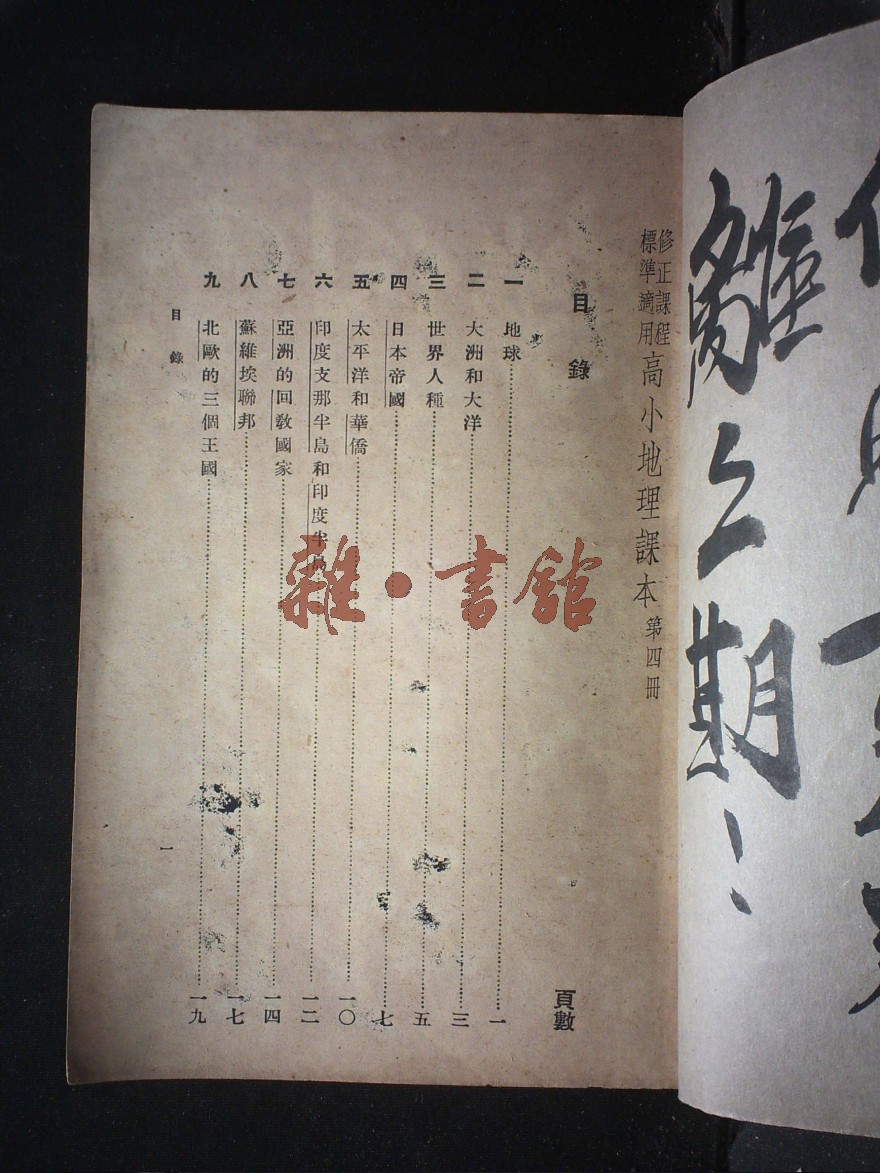 難
離之期！
修正課程
標準適用
高小地理課本 第四冊
目錄
頁數
一 地球 一
二 大洲和大洋 三
三 世界人種 五
四 日本帝國 七
五 太平洋和華僑 一〇
六 印度支那半島和印度半島 一二
七 亞洲的回教國家 一四
八 蘇維埃聯邦 一七
九 北歐的三個王國 一九
目錄
一
雜·書館